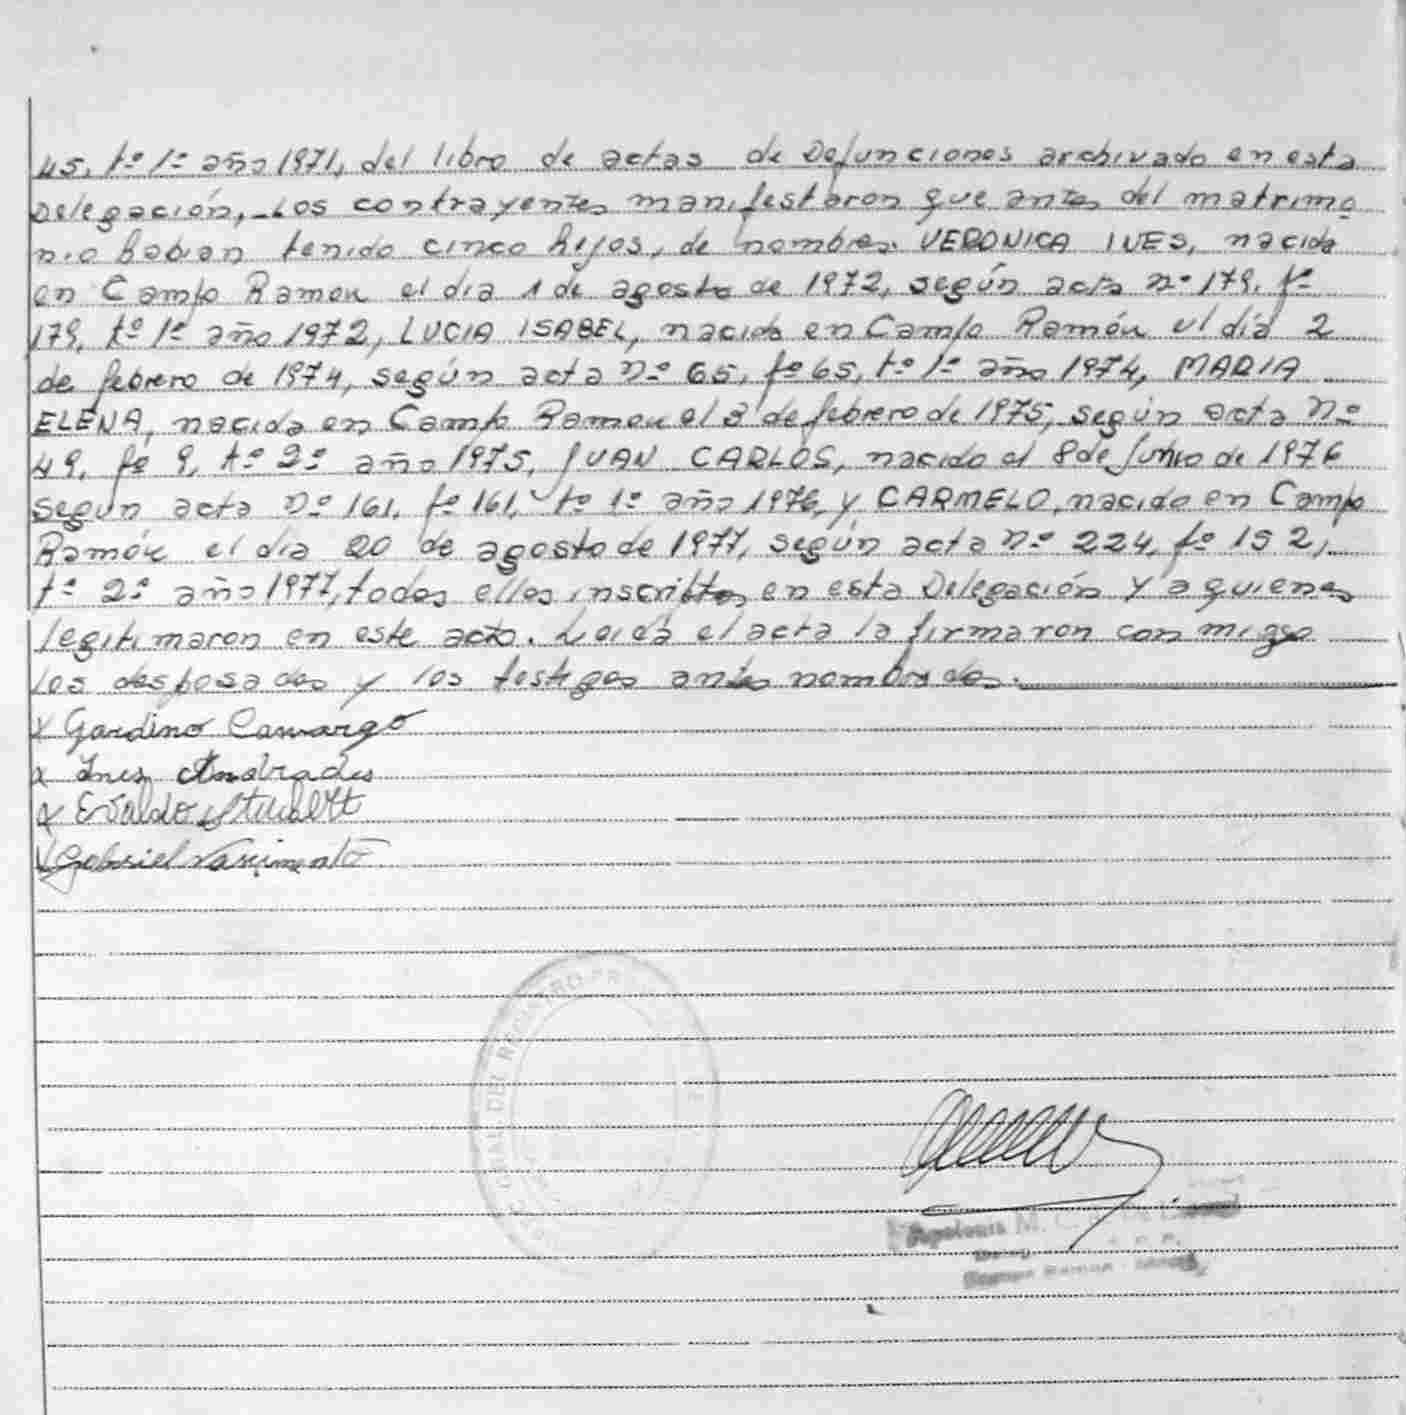 45, tº 1º año 1971, del libro de actas de Defunciones archivado en esta
Delegación,_Los contrayentes manifestaron que antes del matrimo
nio habian tenido cinco hijos, de nombres. VERONICA INES, nacida
en Campo Ramon el dia 1 de agosto de 1972, según acta nº 179, fº
179, tº 1º año 1972, LUCIA ISABEL, nacida en Campo Ramón el día 2
de febrero de 1974, según acta Nº 65, fº 65, tº 1º año 1974, MARIA
ELENA, nacida en Campo Ramon el 3 de febrero de 1975, según acta Nº
49, fº 9, tº 2º año 1975, JUAN CARLOS, nacido el 8 de Junio de 1976
según acta Nº 161, fº 161, tº 1º año 1976, y CARMELO, nacido en Campo
Ramón el dia 20 de agosto de 1977, según acta Nº 224, fº 152,
tº 2º año 1977, todos ellos inscriptos en esta Delegación y a quienes
legitimaron en este acto. Leida el acta la firmaron con migo
los desposados y los testigos antes nombrados.
x Gardino Camargo
x Ines Andrades
x Evaldo Stubert
x Gabriel Nascimento
GRAL DEL REGISTRO PR
Apolonia M. C.
Campo Ramon